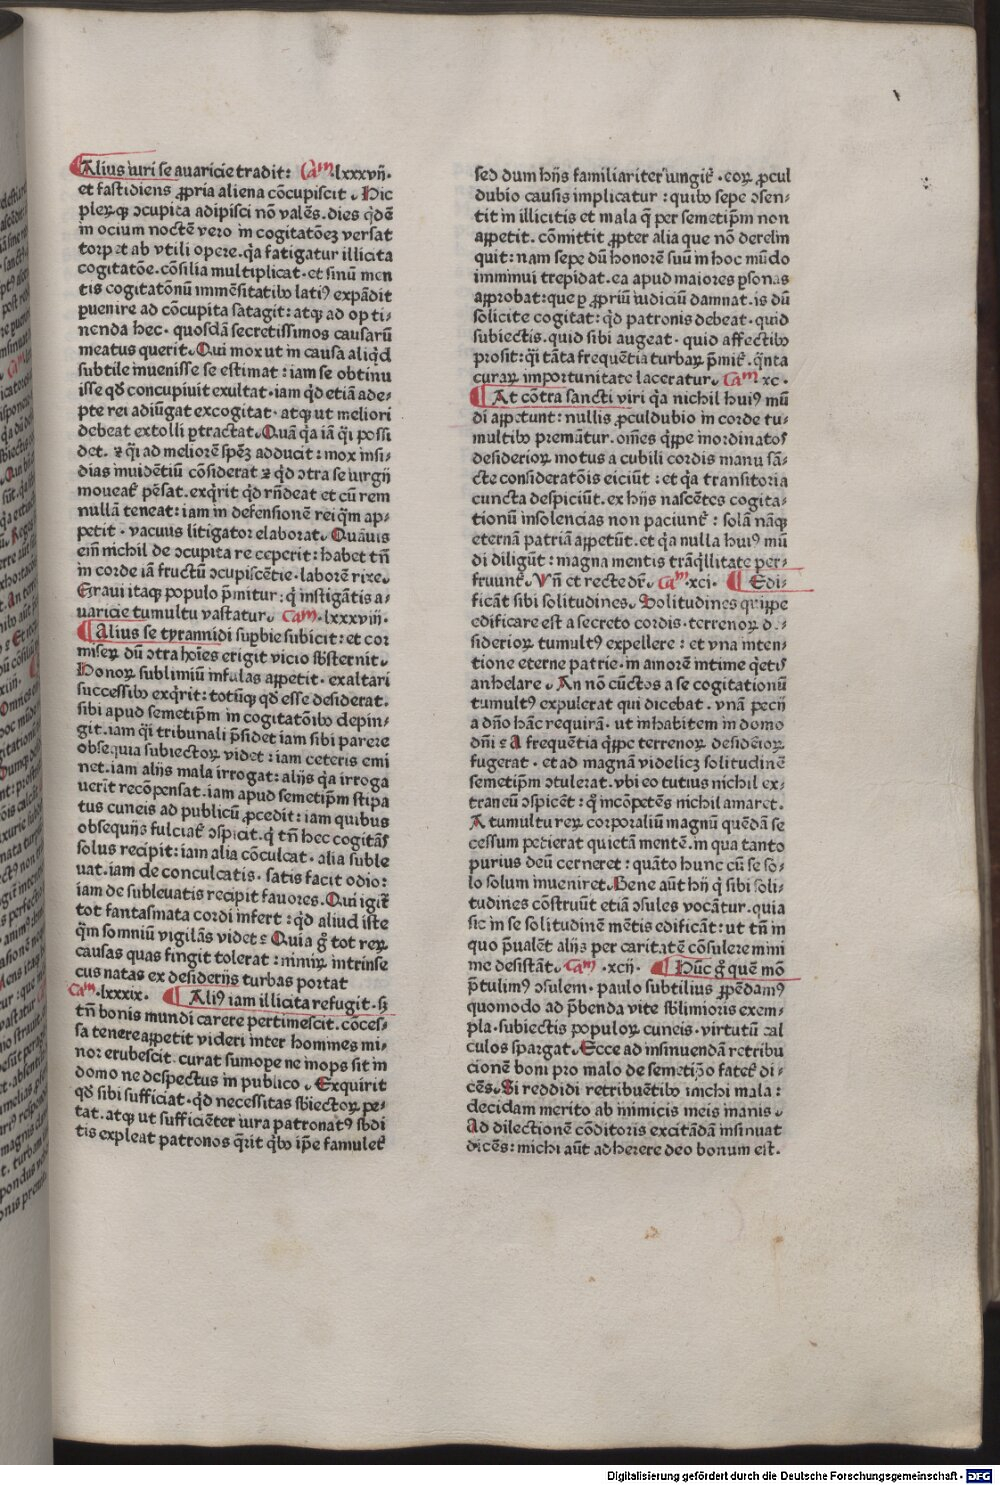 Alius iuri se auaricie tradit: Cam lxxxvij.
et fastidiens ꝓpria aliena cōcupiscit. Hic
pleꝝqꝫ ↄcupita adipisci nō valēs. dies q̄dē
in ocium noctē vero in cogitatōeꝫ versat
torpet ab vtili opere. q̇a fatigatur illicita
cogitatōe. cōsilia multiplicat. et sinū men
tis cogitatōnū immēsitatibꝫ latiꝰ expādit
puenire ad cōcupita satagit: atqꝫ ad opti-
nenda hec. quosdā secretissimos causarū
meatus querit. Qui mox ut in causa aliq̇d
subtile inuenisse se estimat: iam se obtinu
isse qḋ concupiuit exultat. iam q̇d etiā ade-
pte rei adiūgat excogitat. atqꝫ ut meliori
debeat extolli ꝑtractat. Quā q̇a iā q̇i possi
det. ⁊ q̇i ad meliorē spēꝫ adducit: mox insi-
dias inuidētiū cōsiderat ⁊ q̇d ↄtra se iurgij
moueat̄ pēsat. exq̇rit q̇d rn̄deat et cū rem
nullā teneat: iam in defensionē rei q̇m ap-
petit. vacuus litigator elaborat. Quāuis
eim̄ nichil de ↄcupita re ceperit: habet tn̄
in corde iā fructū ↄcupiscētie. laborē rixe.
Graui itaqꝫ populo p̄mitur: q̇ instigātis a-
uaricie tumultu vastatur. Cam. lxxxviij.
Alius se tyrannidi suꝑbie subicit: et cor
miseꝝ dū ↄtra hoīes erigit vicio sb̄sternit.
Honoꝝ sublimiū infulas aꝑpetit. exaltari
successibꝫ exq̇rit: totūqꝫ qḋ esse desiderat.
sibi apud semetip̄m in cogitatōibꝫ depin-
git. iam q̇i tribunali p̄sidet iam sibi parere
obsequia subiectoꝝ videt: iam ceteris emi
net. iam alijs mala irrogat: alijs q̇a irroga
uerit recōpensat. iam apud semetip̄m stipa
tus cuneis ad publicū ꝓcedit: iam quibus
obsequijs fulciat̄ ↄspicit. q̇ tn̄ hec cogitās
solus recipit: iam alia cōculcat. alia suble
uat. iam de conculcatis. satis facit odio:
iam de subleuatis recipit fauores. Qui igit̄
tot fantasmata cordi infert: q̇d aliud iste
q̇m somniū vigilās videt? Quia g̊ tot reꝝ
causas quas fingit tolerat: nimiꝝ intrinse
cus natas ex desiderijs turbas portat
Cam. lxxxix. Aliꝰ iam illicita refugit. sꝫ
tn̄ bonis mundi carere pertimescit. cōces-
sa tenere aꝑpetit videri inter hommes mi-
nor erubescit. curat sumope ne inops sit in
domo ne despectus in publico. Exquirit
qḋ sibi sufficiat. q̇d necessitas sb̄iectoꝝ pe-
tat. atqꝫ ut sufficiēter iura patronatꝰ sb̄di
tis expleat patronos q̇rit q̇bꝫ ip̄e famulet̄
sed dum hijs familiariter iungit̄. eoꝝ ꝓcul
dubio causis implicatur: quibꝫ sepe ↄsen-
tit in illicitis et mala q̄ per semetip̄m non
aꝑpetit. cōmittit ꝓpter alia que nō derelin
quit: nam sepe dū honorē suū in hoc mūdo
imminui trepidat. ea apud maiores ꝑsonas
aꝑprobat: que ꝑ ꝓpriū iudiciū damnat. is dū
solicite cogitat: q̇d patronis debeat. quid
subiectis. quid sibi augeat. quid affectibꝫ
prosit: q̇i tāta frequētia turbaꝝ p̄mit̄. q̇nta
curaꝝ importunitate laceratur. Cam xc.
At cōtra sancti viri q̇a nichil huiꝰ mū
di aꝑpetunt: nullis ꝓculdubio in corde tu-
multibꝫ premūtur. om̄es q̇ꝑpe inordinatos
desiderioꝝ motus a cubili cordis manu sā-
cte consideratōis eiciūt: et q̇a transitoria
cuncta despiciūt. ex hijs nascētes cogita-
tionū insolencias non paciunt̄: solā nāqꝫ
eternā patriā aꝑpetūt. et q̇a nulla huiꝰ mū
di diligūt: magna mentis trāq̇llitate per-
fruunt̄. Vn̄ et recte dr̄. Cam. xci. Edi-
ficāt sibi solitudines. Solitudines quiꝑpe
edificare est a secreto cordis. terrenoꝝ de-
siderioꝝ tumultꝰ expellere: et vna inten-
tione eterne patrie. in amorē intime q̇etis
anhelare. An nō cūctos a se cogitationū
tumultꝰ expulerat qui dicebat. vnā pecij
a dn̄o hāc requirā. ut inhabitem in domo
dn̄i? A frequētia q̇ꝑpe terrenoꝝ desiderioꝝ
fugerat. et ad magnā videlicꝫ solitudinē
semetip̄m ↄtulerat. vbi eo tutius nichil ex-
traneū ↄspicēt: q̇ incōpetēs nichil amaret.
A tumultu reꝝ corporaliū magnū quēdā se
cessum petierat quietā mentē. in qua tanto
purius deū cerneret: quāto hunc cū se so-
lo solum inueniret. Bene aūt hij q̇ sibi soli-
tudines cōstruūt etiā ↄsules vocātur. quia
sic in se solitudinē mētis edificāt: ut tn̄ in
quo p̄ualēt alijs per caritatē cōsulere mini
me desistāt. Cam. xcij. Hūc g̊ quē mō
p̄tulimꝰ ↄsulem. paulo subtilius ꝓpēdamꝰ
quomodo ad p̄benda vite sb̄limioris exem-
pla. subiectis populoꝝ cuneis. virtutū cal
culos spargat. Ecce ad insinuendā retribu
cionē boni pro malo de semetip̄o fatet̄ di-
cēs. Si reddidi retribuētibꝫ michi mala:
decidam merito ab inimicis meis inanis.
Ad dilectionē cōditoris excitādā insinuat
dicēs: michi aūt adherere deo bonum est.
Digitalisierung gefördert durch die Deutsche Forschungsgemeinschaft - DFG